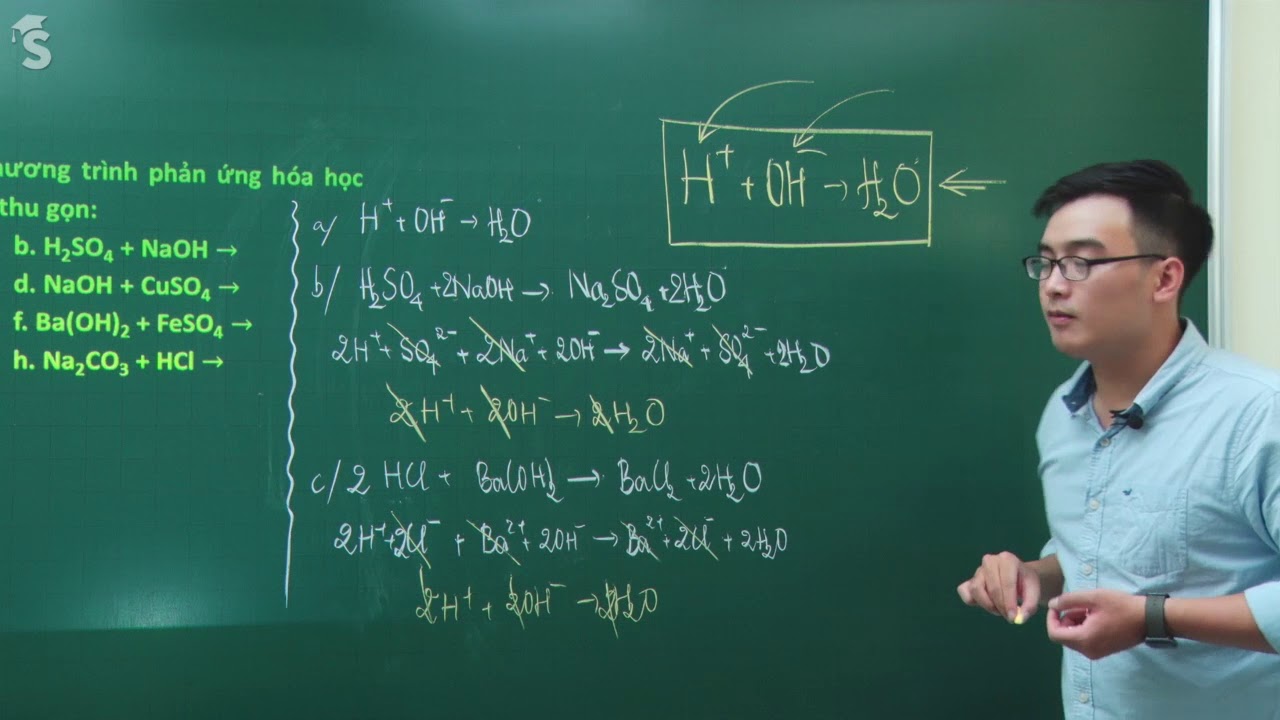 S
hương trình phản ứng hóa học
thu gọn:
b. H₂SO₄ + NaOH →
d. NaOH + CuSO₄ →
f. Ba(OH)₂ + FeSO₄ →
h. Na₂CO₃ + HCl →
H⁺ + OH⁻ → H₂O
a/ H⁺ + OH⁻ → H₂O
b/ H₂SO₄ + 2NaOH → Na₂SO₄ + 2H₂O
2H⁺ + SO₄²⁻ + 2Na⁺ + 2OH⁻ → 2Na⁺ + SO₄²⁻ + 2H₂O
2H⁺ + 2OH⁻ → 2H₂O
c/ 2 HCl + Ba(OH)₂ → BaCl₂ + 2H₂O
2H⁺ + 2Cl⁻ + Ba²⁺ + 2OH⁻ → Ba²⁺ + 2Cl⁻ + 2H₂O
2H⁺ + 2OH⁻ → 2H₂O